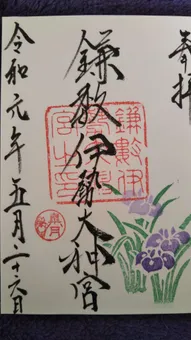 奉拝
鎌数伊勢大神宮
鎌數伊
勢大神
宮之印
令和元年五月二十六日